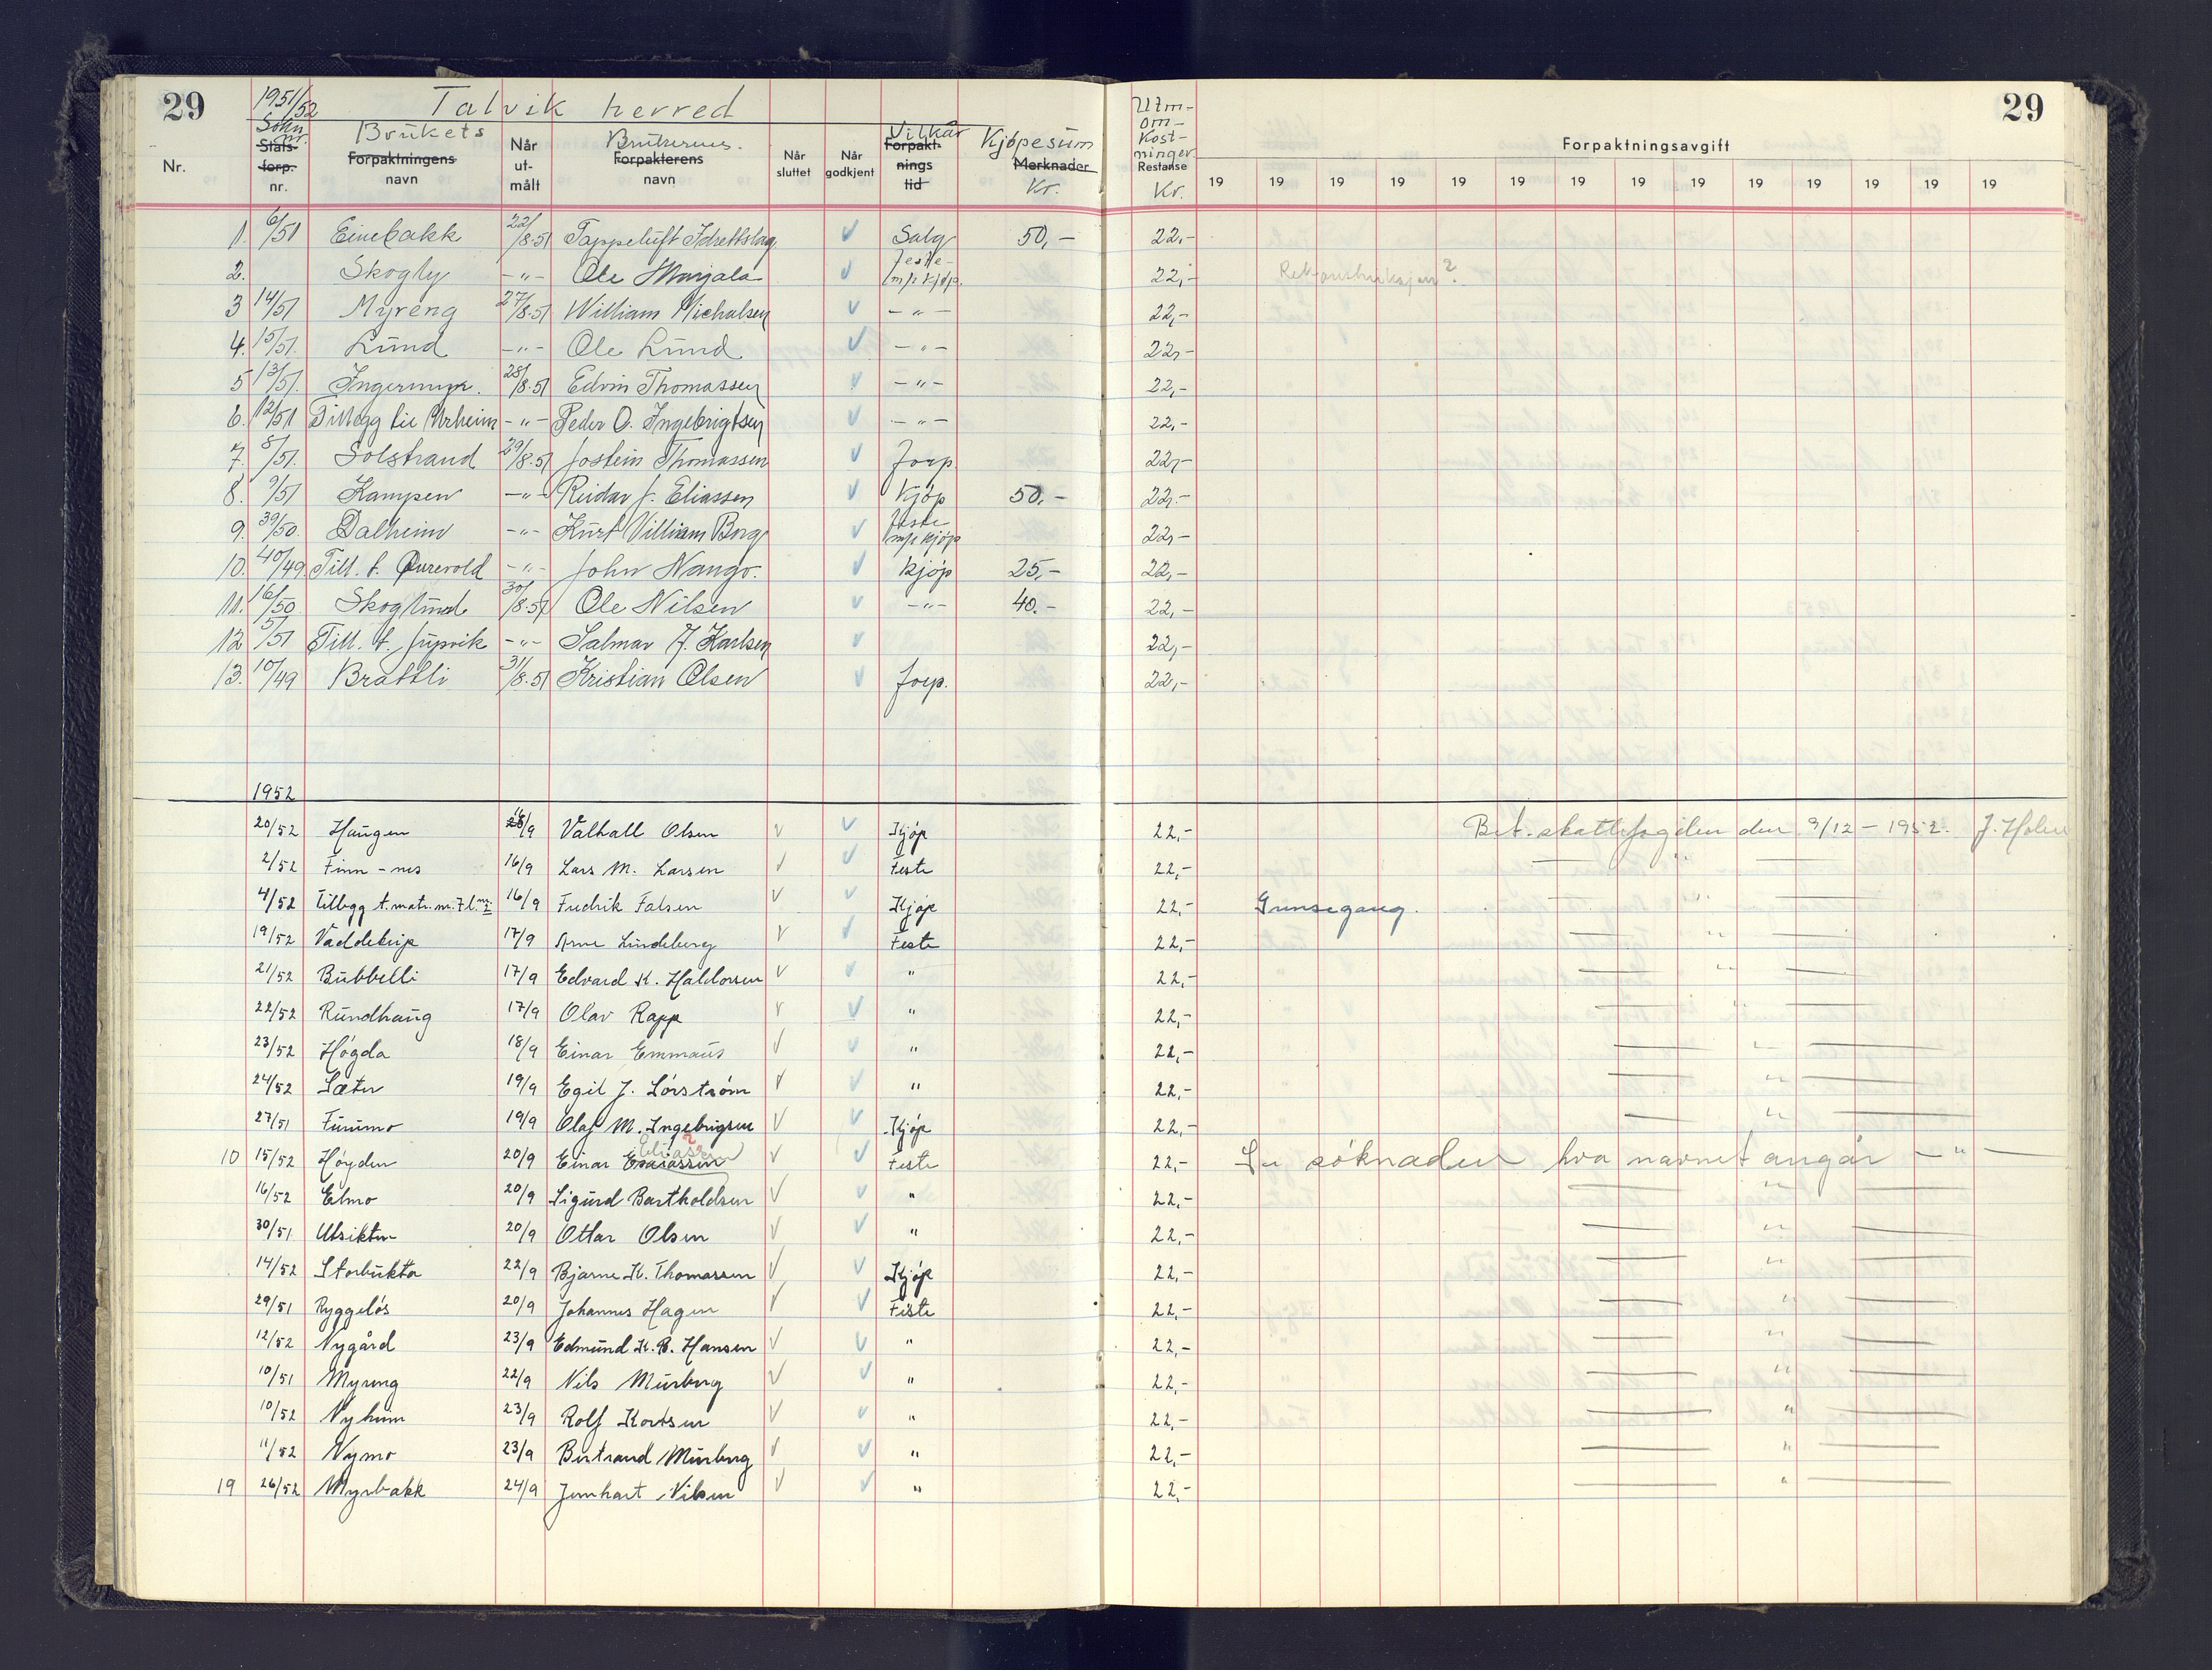 29 1951/52 Talvik herred 29
Nr. Søkn. nr. Stats-forp. nr. Brukets Forpaktningens navn Når ut-målt Brukerens Forpakterens navn Når sluttet Når godkjent Vilkår Forpakt-nings tid Kjøpesum Merknader Kr. Utm-om-kost-ninger Restanse Kr. Forpaktningsavgift
19 19 19 19 19 19 19 19 19 19 19 19 19 19
1. 6/51 Einebakk 22/8.51 Tappeluft Idrettslag Salg 50,- 22,-
2. Skogly -"- Ole Marjala Feste m/r kjøp. 22,- Rekonstruksjon?
3 14/51 Myreng 27/8.51 William Michalsen -"- 22,-
4. 15/51. Lund -"- Ole Lund -"- 22,-
5 13/51. 28/8.51 Edvin Thomassen -"- 22,-
6. 12/51 Tillegg til Urheim -"- Peder O. Ingebrigtsen -"- 22,-
7. 8/51. Solstrand 29/8.51 Jostein Thomassen Forp. 22,-
8. 9/51 Kampen -"- Reidar J. Eliassen Kjøp 50.- 22.-
9. 39/50. Dalheim -"- Kurt Villiam Borg Feste m/r kjøp 22,-
10. 40/49 Till. t. -"- John Nango. Kjøp 25,- 22,-
11. 16/50 Skoglund 30/8.51 Ole Nilsen -"- 40.- 22,-
12 5/51 Till. t. -"- Salmar J. Karlsen 22,-
13. 10/49 Brattli 31/8.51 Kristian Olsen Forp. 22,-
1952
20/52 Haugen /9 Valhall Olsen Kjøp 22,- Bet. skattefogden den 9/12 - 1952. J. Holm
2/52 Finn-nes 16/9 Lars M. Larsen Feste 22,- — " —
4/52 Tillegg t. matr. nr. 7 l.nr. 16/9 Fredrik Falsen Kjøp 22,- Grensegang. — " —
19/52 17/9 Arne Lindeberg Feste 22,- — " —
21/52 Bubbelli 17/9 Edvard K. Haldorsen " 22,- — " —
22/52 Rundhaug 17/9 Olav Rapp " 22,- — " —
23/52 Høgda 18/9 Einar Emmaus " 22,- — " —
24/52 Sæter 19/9 Egil J. Sørstrøm " 22,- — " —
27/51 Furumo 19/9 Olaf M. Ingebrigsen Kjøp 22,- — " —
10 15/52 Høyden 20/9 Einar Esaiassen Eliassen ? Feste 22,- Se søknaden hva navnet angår — " —
16/52 Elmo 20/9 Sigurd Bartholdsen " 22,- — " —
30/51 Utsikten 20/9 Ottar Olsen " 22,- — " —
14/52 Storbukta 22/9 Bjarne K. Thomassen Kjøp 22,- — " —
29/51 Ryggeløs 20/9 Johannes Hagen Feste 22,- — " —
12/52 Nygård 23/9 Edmund K. B. Hansen " 22,- — " —
10/51 Myreng 22/9 Nils Murberg " 22,- — " —
10/52 Nyheim 23/9 Rolf Kortsen " 22,- — " —
11/52 Nymo 23/9 Bertrand Murberg " 22,- — " —
19 26/52 Myrbakk 24/9 Jernhart Nilsen " 22,- — " —